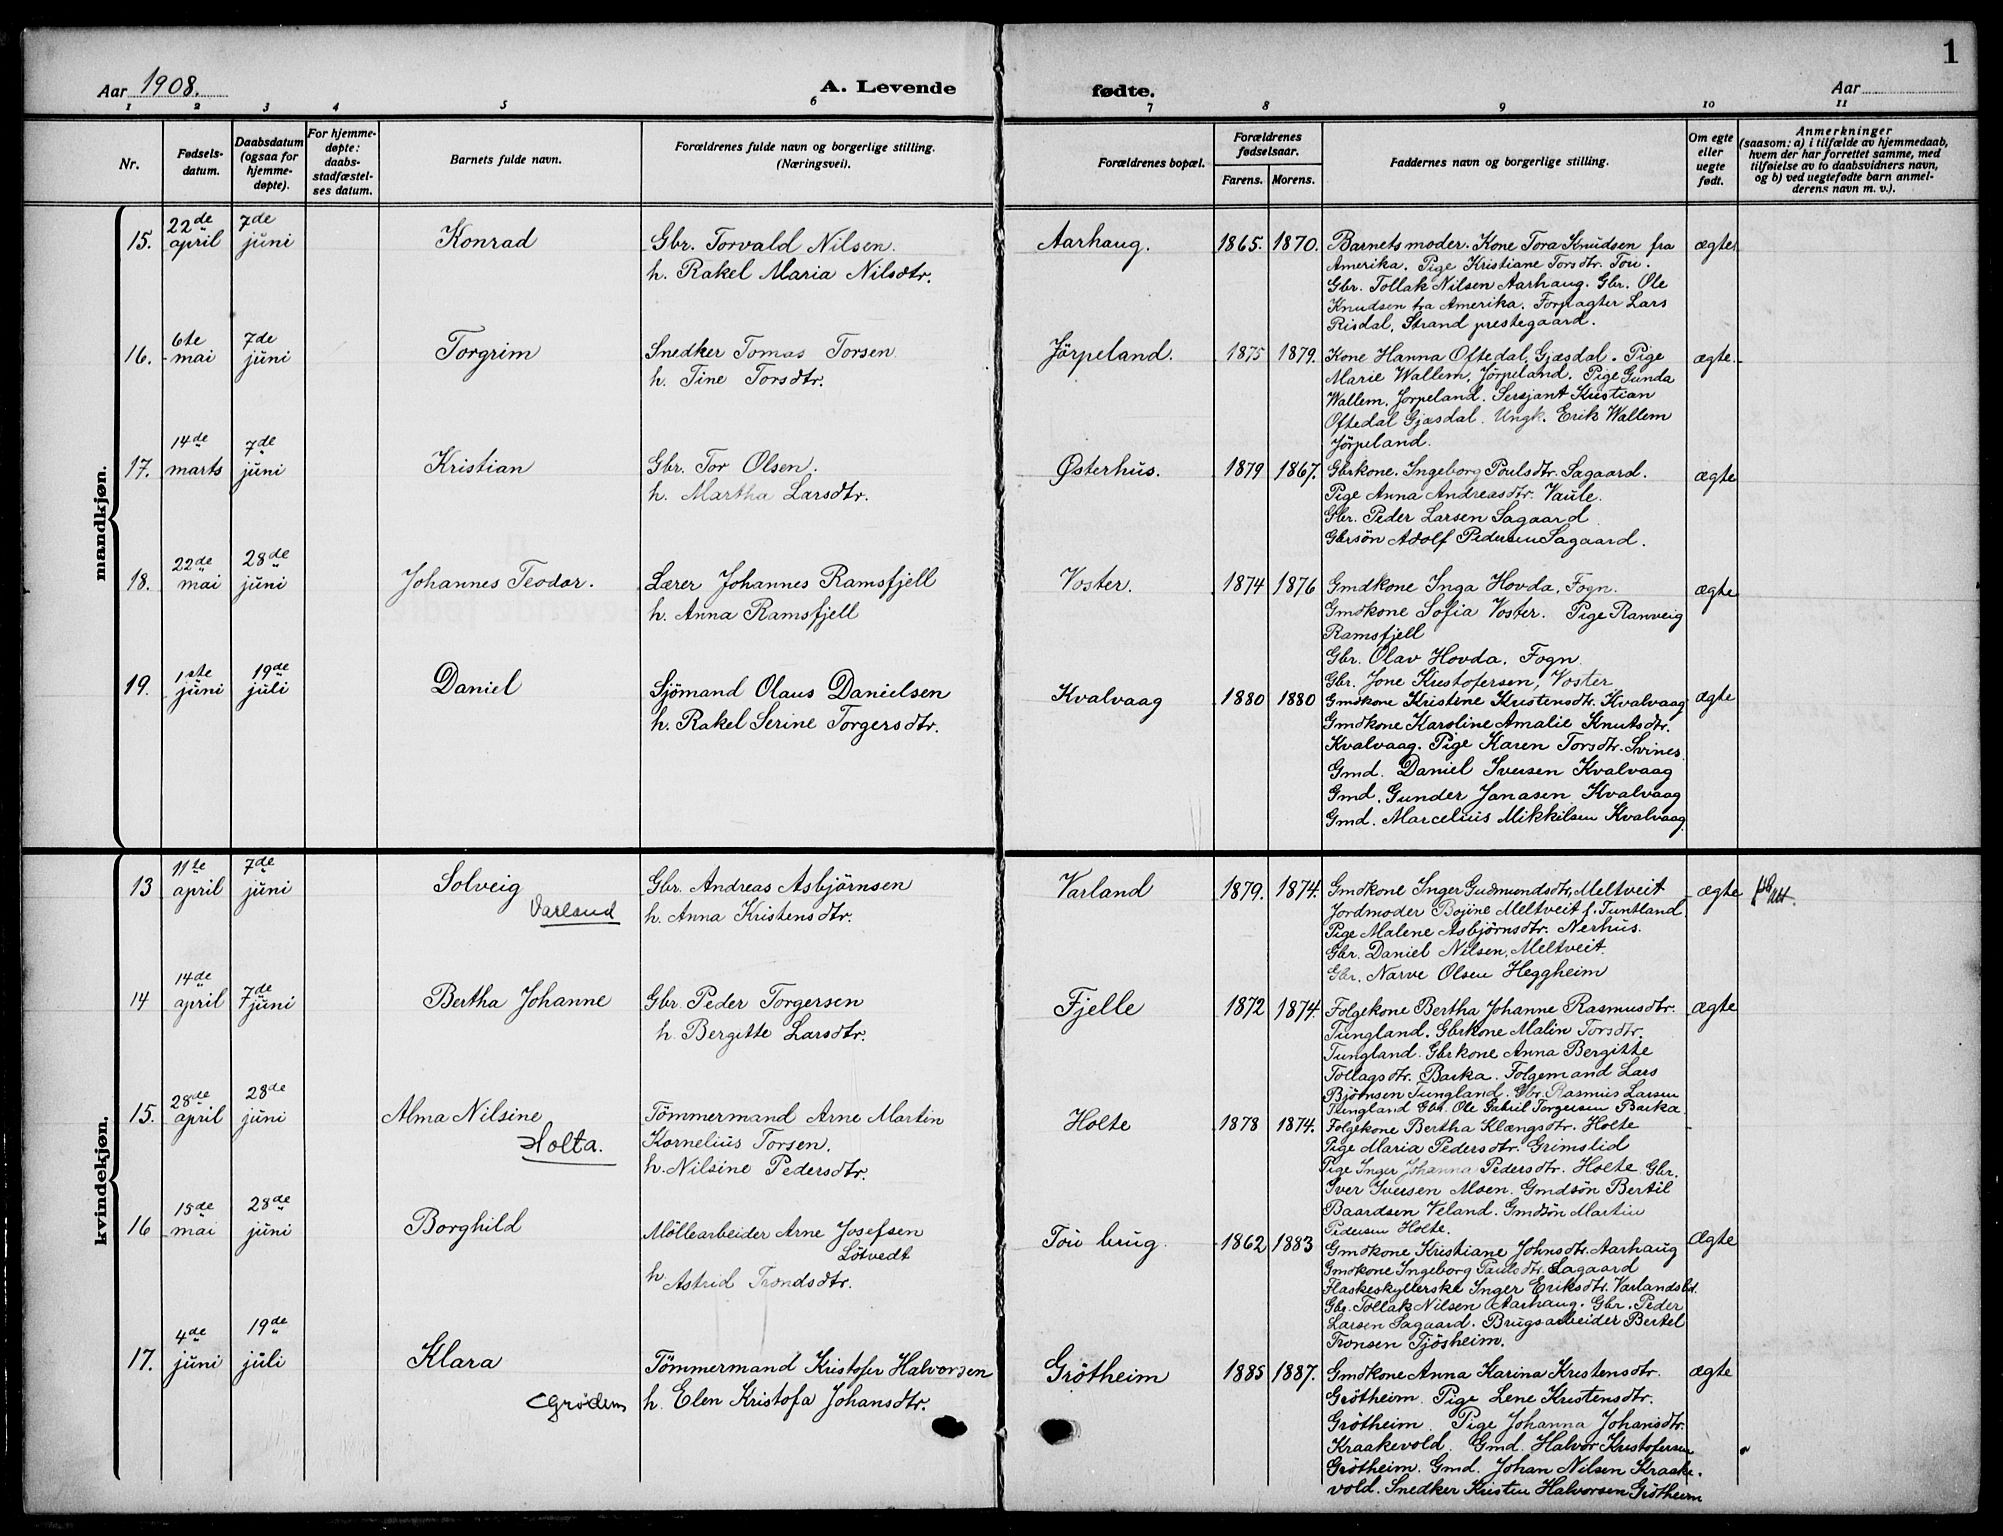 1
Aar 1908. A. Levende fødte. Aar
1 2 3 4 5 6 7 8 9 10 11
Nr.
Fødsels-
datum.
Daabsdatum
(ogsaa for
hjemme-
døpte).
For hjemme-
døpte:
daabs-
stadfæstel-
ses datum.
Barnets fulde navn.
Forældrenes fulde navn og borgerlige stilling.
(Næringsvei).
Forældrenes bopæl.
Forældrenes
fødselsaar.
Farens. Morens.
Faddernes navn og borgerlige stilling.
Om egte
eller
uegte
født.
Anmerkninger
(saasom: a) i tilfælde av hjemmedaab,
hvem der har forrettet samme, med
tilføielse av to daabsvidners navn,
og b) ved uegtefødte barn anmel-
derens navn m. v.).
mandkjøn.
15.
22de
april
7de
juni
Konrad
Gbr. Torvald Nilsen.
h. Rakel Maria Nilsdtr.
Aarhaug.
1865. 1870.
Barnets moder. Kone Tora Knudsen fra
Amerika. Pige Kristiane Torsdtr. Tou.
Gbr. Tollak Nilsen Aarhaug. Gbr. Ole
Knudsen fra Amerika. Forpagter Lars
Risdal, Strand prestegaard.
ægte
16.
6te
mai
7de
juni
Torgrim
Snedker Tomas Torsen
h. Tine Torsdtr.
Jörpeland.
1875 1879.
Kone Hanna Oftedal, Gjæsdal. Pige
Marie Wallem, Jørpeland. Pige Gunda
Wallem, Jørpeland. Sersjant Kristian
Oftedal Gjæsdal. Ungk. Erik Wallem
Jørpeland.
ægte.
17.
14de
marts
7de
juni
Kristian
Gbr. Tor Olsen.
h. Martha Larsdtr.
Østerhus.
1879 1867.
Gbrkone. Ingeborg Poulsdtr. Sagaard.
Pige Anna Andreasdtr. Vaule.
Gbr. Peder Larsen Sagaard
Gbrsön Adolf Pedersen Sagaard.
ægte
18.
22de
mai
28de
juni
Johannes Teodor.
Lærer Johannes Ramsfjell
h. Anna Ramsfjell
Voster.
1874 1876
Gmdkone Inga Hovda, Fogn.
Gmdkone Sofia Voster. Pige Ranveig
Ramsfjell
Gbr. Olav Hovda. Fogn
Gbr. Jone Kristofersen, Voster
ægte
19.
1ste
juni
19de
juli
Daniel
Sjömand Olaus Danielsen
h. Rakel Serine Torgersdtr.
Kvalvaag
1880 1880
Gmdkone Kristine Kristensdtr. Kvalvaag
Gmdkone Karoline Amalie Knutsdtr.
Kvalvaag. Pige Karen Torsdtr. Svines
Gmd. Daniel Iversen Kvalvaag
Gmd. Gunder Jonasen Kvalvaag
Gmd. Marcelius Mikkilsen Kvalvaag
ægte
kvindekjøn.
13
11te
april
7de
juni
Solveig
Varland
Gbr. Andreas Asbjørnsen
h. Anna Kristensdtr.
Varland
1879. 1874.
Gmdkone Inger Gudmundsdtr, Meltveit
Jordmoder Bojine Meltveit f. Tuntland
Pige Malene Asbjørnsdtr. Nerhus.
Gbr. Daniel Nilsen, Meltveit.
Gbr. Narve Olsen Heggheim
ægte
14
14de
april
7de
juni
Bertha Johanne
Gbr. Peder Torgersen
h. Bergitte Larsdtr.
Fjelle
1872 1874.
Folgekone Bertha Johanne Rasmusdtr.
Tungland. Gbrkone Malin Torsdtr.
Tungland. Gbrkone Anna Bergitte
Tollagsdtr. Barka. Folgemand Lars
Björnsen Tungland. Gbr. Rasmus Larsen
Tungland Gbr. Ole Gabriel Torgersen Barka.
ægte
15.
28de
april
28de
juni
Alma Nilsine
Holta.
Tømmermand Arne Martin
Kornelius Torsen.
h. Nilsine Pedersdtr.
Holte
1878 1874.
Folgekone Bertha Klængsdtr. Holte
Pige Maria Pedersdtr. Grimslid
Pige Inger Johanna Pedersdtr. Holte. Gbr.
Iver Iversen Moen. Gmdsön Bertil
Baardsen Veland. Gmdsön Martin
Pedersen Holte.
16
15de
mai
28de
juni
Borghild
Möllearbeider Arne Josefsen
Lötvedt
h. Astrid Trondsdtr.
Tou brug.
1862 1883
Gmdkone Kristiane Johnsdtr. Aarhaug
Gmdkone Ingeborg Paulsdtr. Sagaard
Flaskeskyllerske Inger Eriksdtr. Varlandsbd.
Gbr. Tollak Nilsen Aarhaug. Gbr. Peder
Larsen Sagaard. Brugsarbeider Bertel
Tronsen Tjösheim.
Ægte
17.
4de
juni
19de
juli
Klara
Grödem
Tømmermand Kristofer Halvorsen
h. Elen Kristofa Johansdtr.
Grötheim
1885 1887.
Gmdkone Anna Karina Kristensdtr.
Grötheim. Pige Lene Kristensdtr.
Grötheim. Pige Johanna Johansdtr.
Kraakevold. Gmd. Halvor Kristofersen
Grötheim. Gmd. Johan Nilsen Kraake-
vold. Snedker Kristen Halvorsen Grötheim
ægte